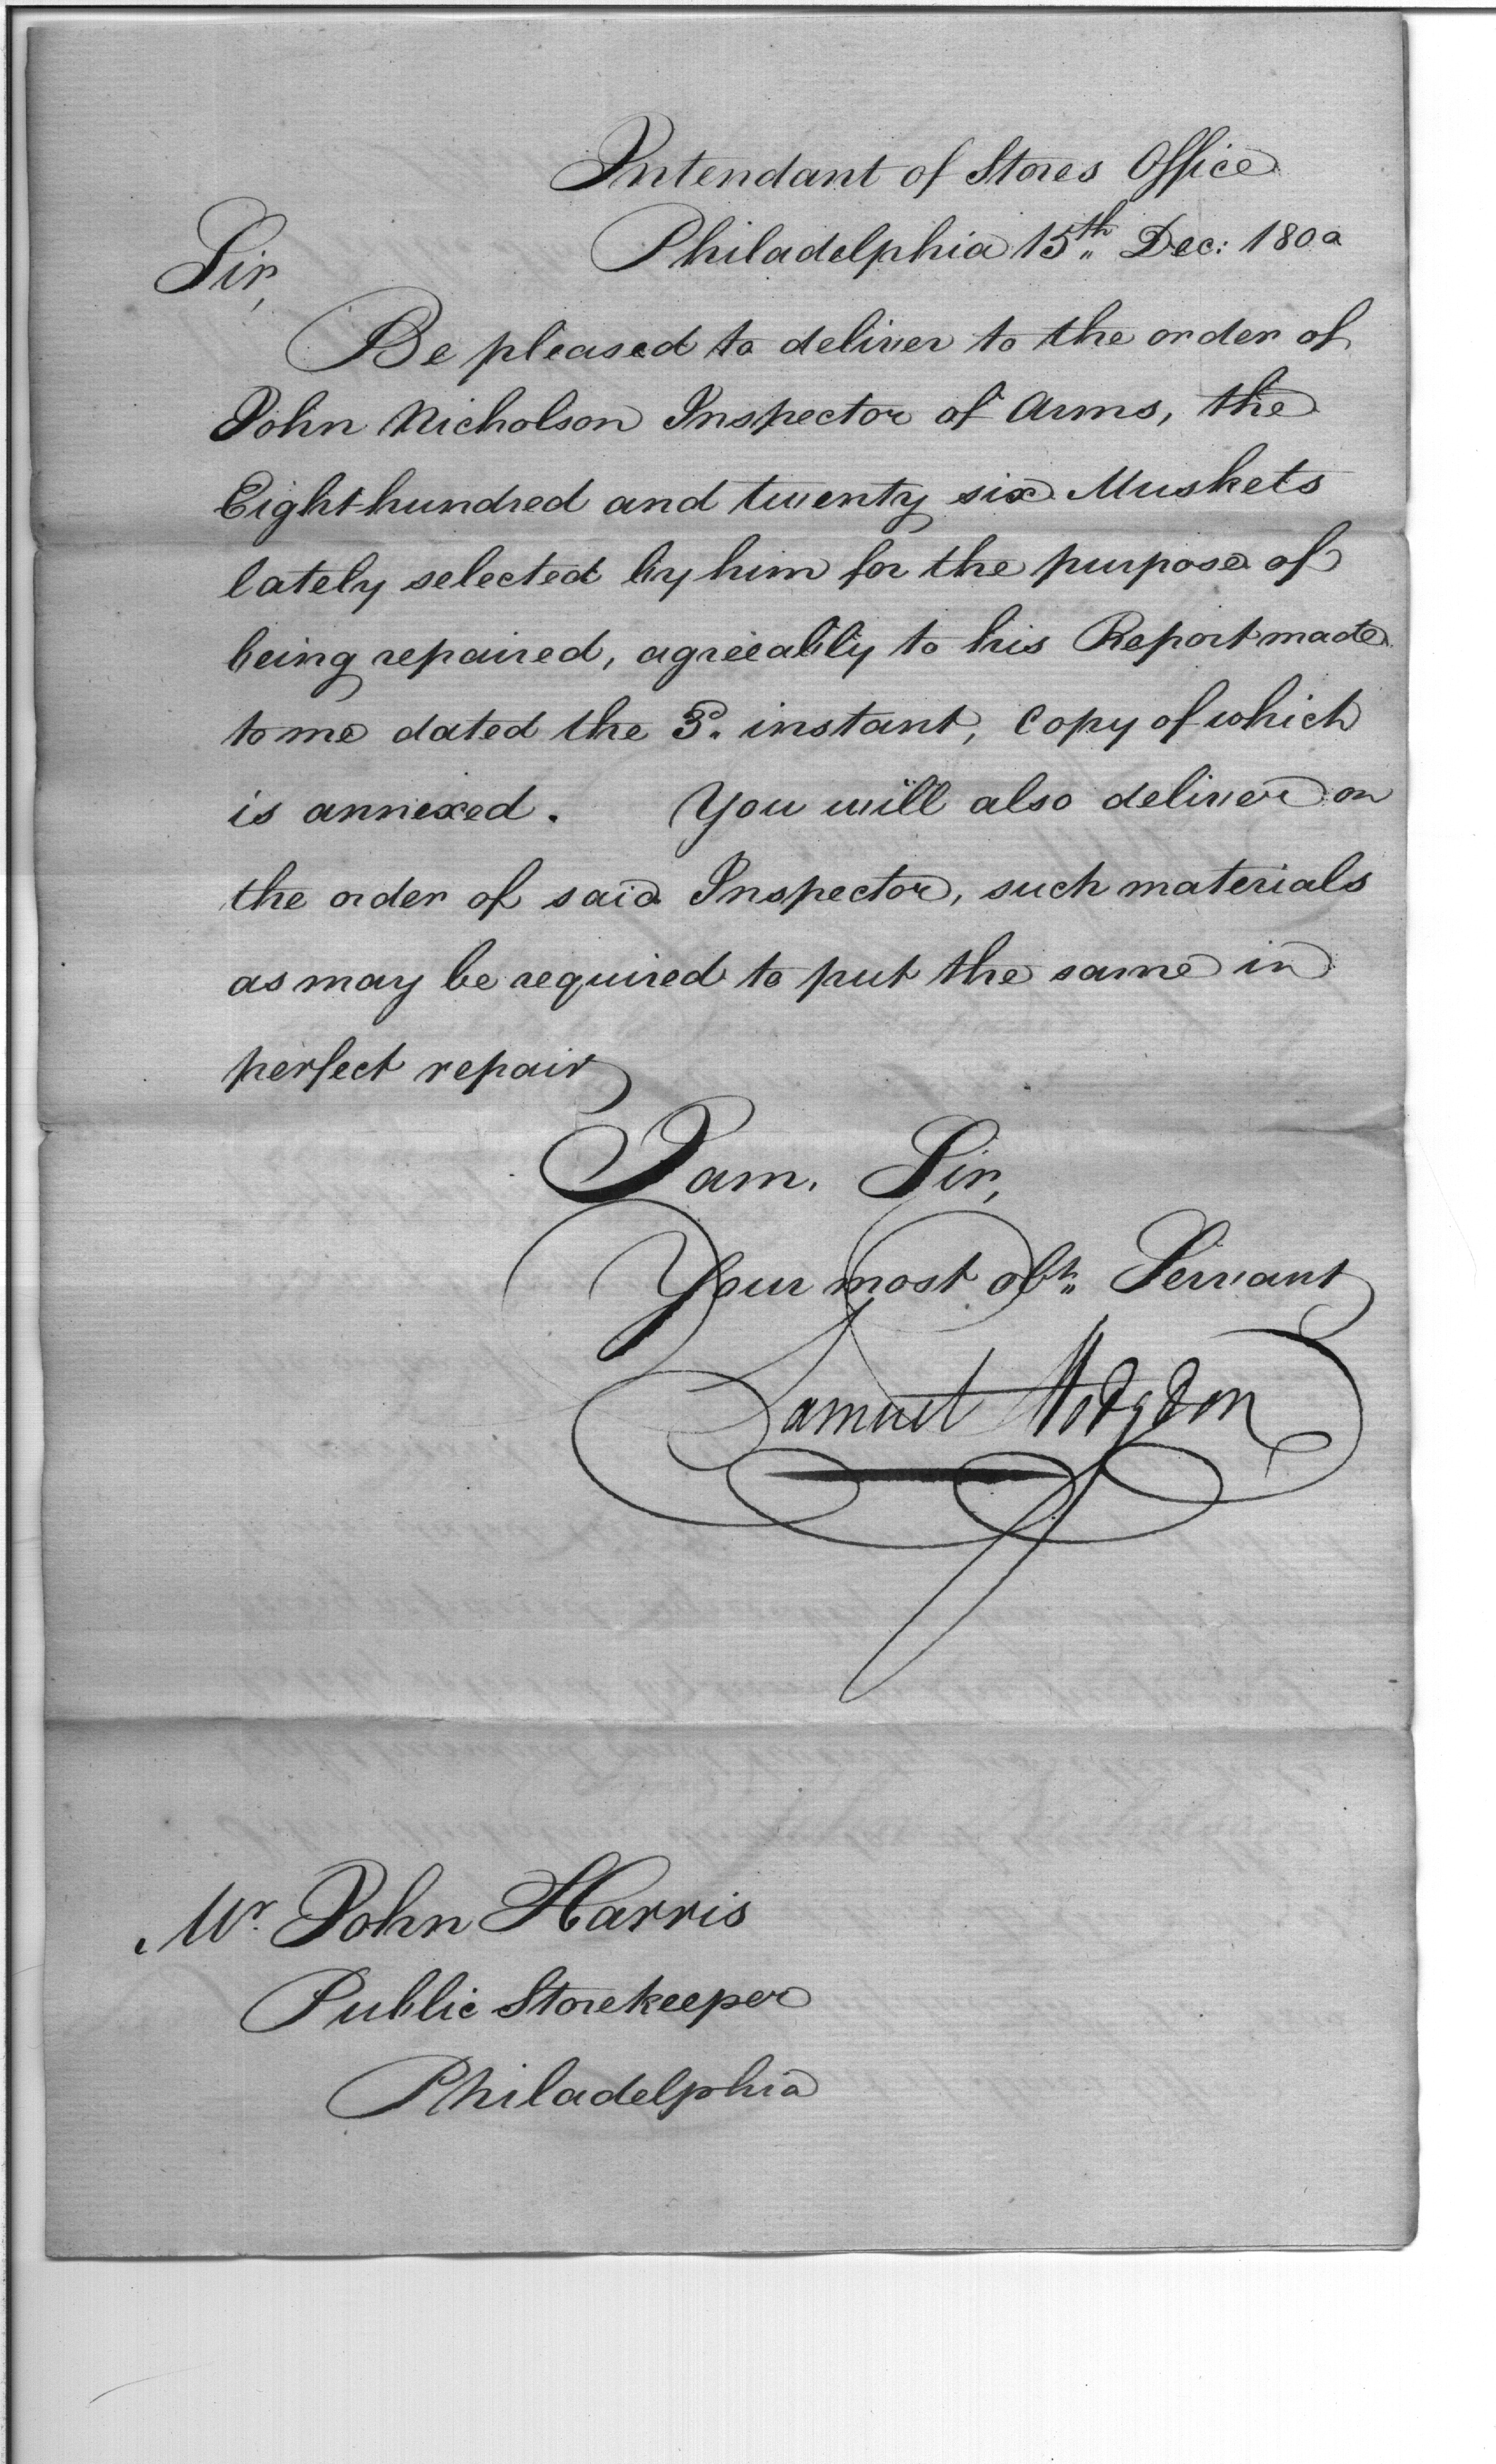 Intendant of Stores Office
Philadelphia 15th Dec: 1800
Sir,
Be pleased to deliver to the order of
John Nicholson Inspector of Arms, the
Eight hundred and twenty six Muskets
lately selected by him for the purpose of
being repaired, agreeably to his Report made
to me dated the 3d. instant, Copy of which
is annexed. You will also deliver on
the order of said Inspector, such materials
as may be required to put the same in
perfect repair
I am, Sir,
Your most obt. Servant
Samuel Hodgdon
Mr. John Harris
Public Storekeeper
Philadelphia